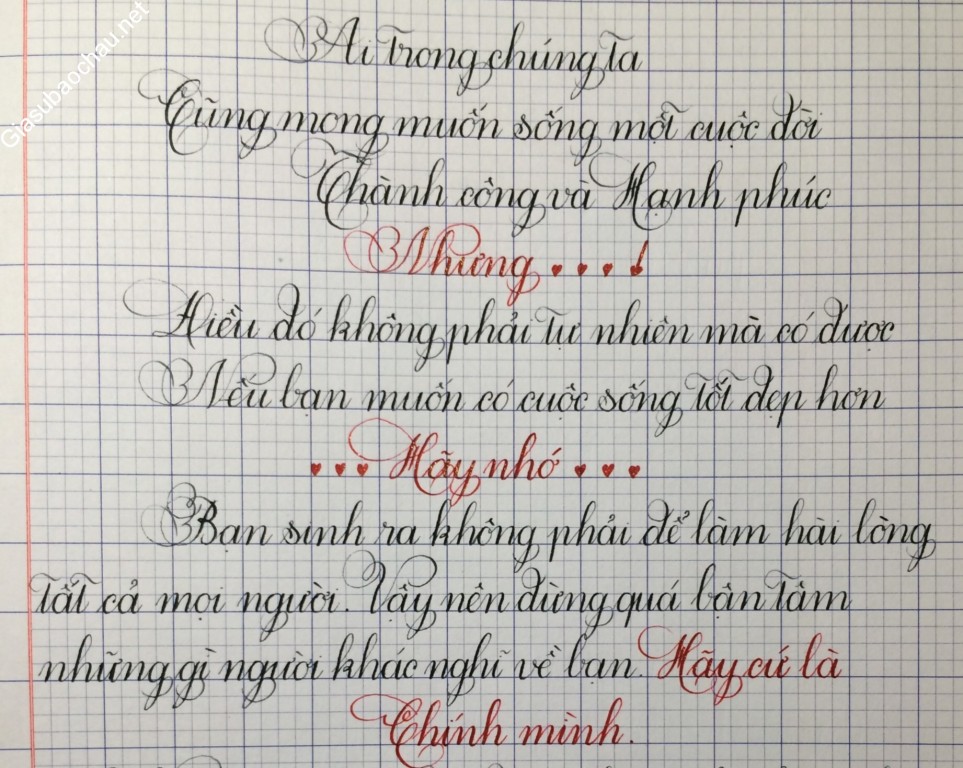 Giasubaochau.net
Ai trong chúng ta
Cũng mong muốn sống một cuộc đời
Thành công và Hạnh phúc
Nhưng...!
Điều đó không phải tự nhiên mà có được
Nếu bạn muốn có cuộc sống tốt đẹp hơn
...Hãy nhớ...
Bạn sinh ra không phải để làm hài lòng
tất cả mọi người. Vậy nên đừng quá bận tâm
những gì người khác nghĩ về bạn. Hãy cứ là
Chính mình.